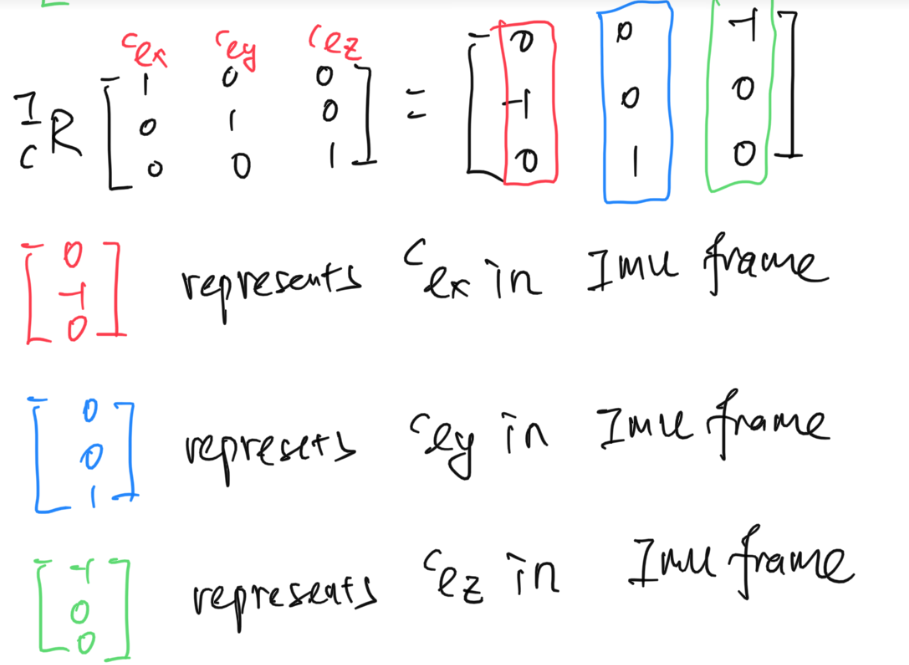 ᶜex ᶜey ᶜez
ᴵ꜀R [1 0 0; 0 1 0; 0 0 1] = [0 0 -1; -1 0 0; 0 1 0]
[0 -1 0] represents ᶜex in Imu frame
[0 0 1] represets ᶜey in Imu frame
[-1 0 0] represents ᶜez in Imu frame